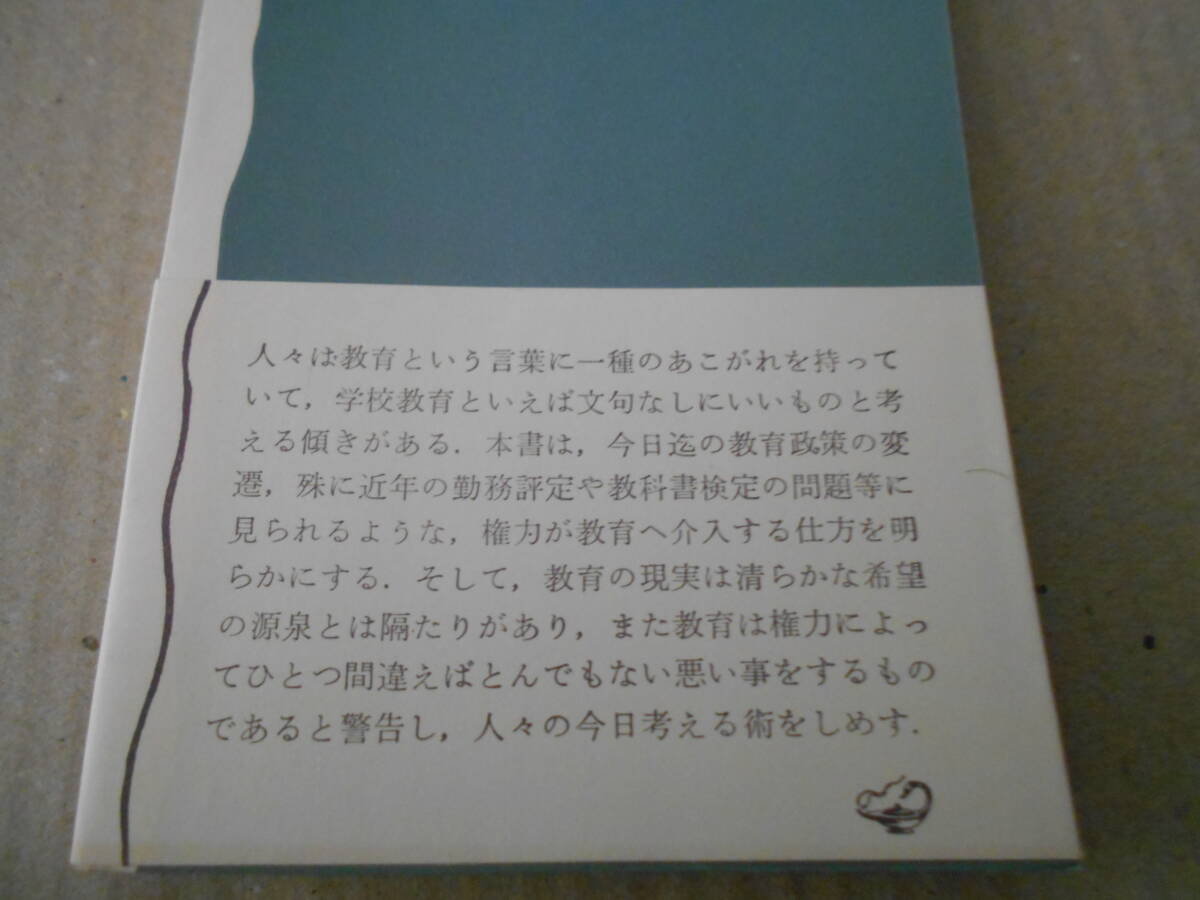 人々は教育という言葉に一種のあこがれを持って
いて，学校教育といえば文句なしにいいものと考
える傾きがある．本書は，今日迄の教育政策の変
遷，殊に近年の勤務評定や教科書検定の問題等に
見られるような，権力が教育へ介入する仕方を明
らかにする．そして，教育の現実は清らかな希望
の源泉とは隔たりがあり，また教育は権力によっ
てひとつ間違えばとんでもない悪い事をするもの
であると警告し，人々の今日考える術をしめす．